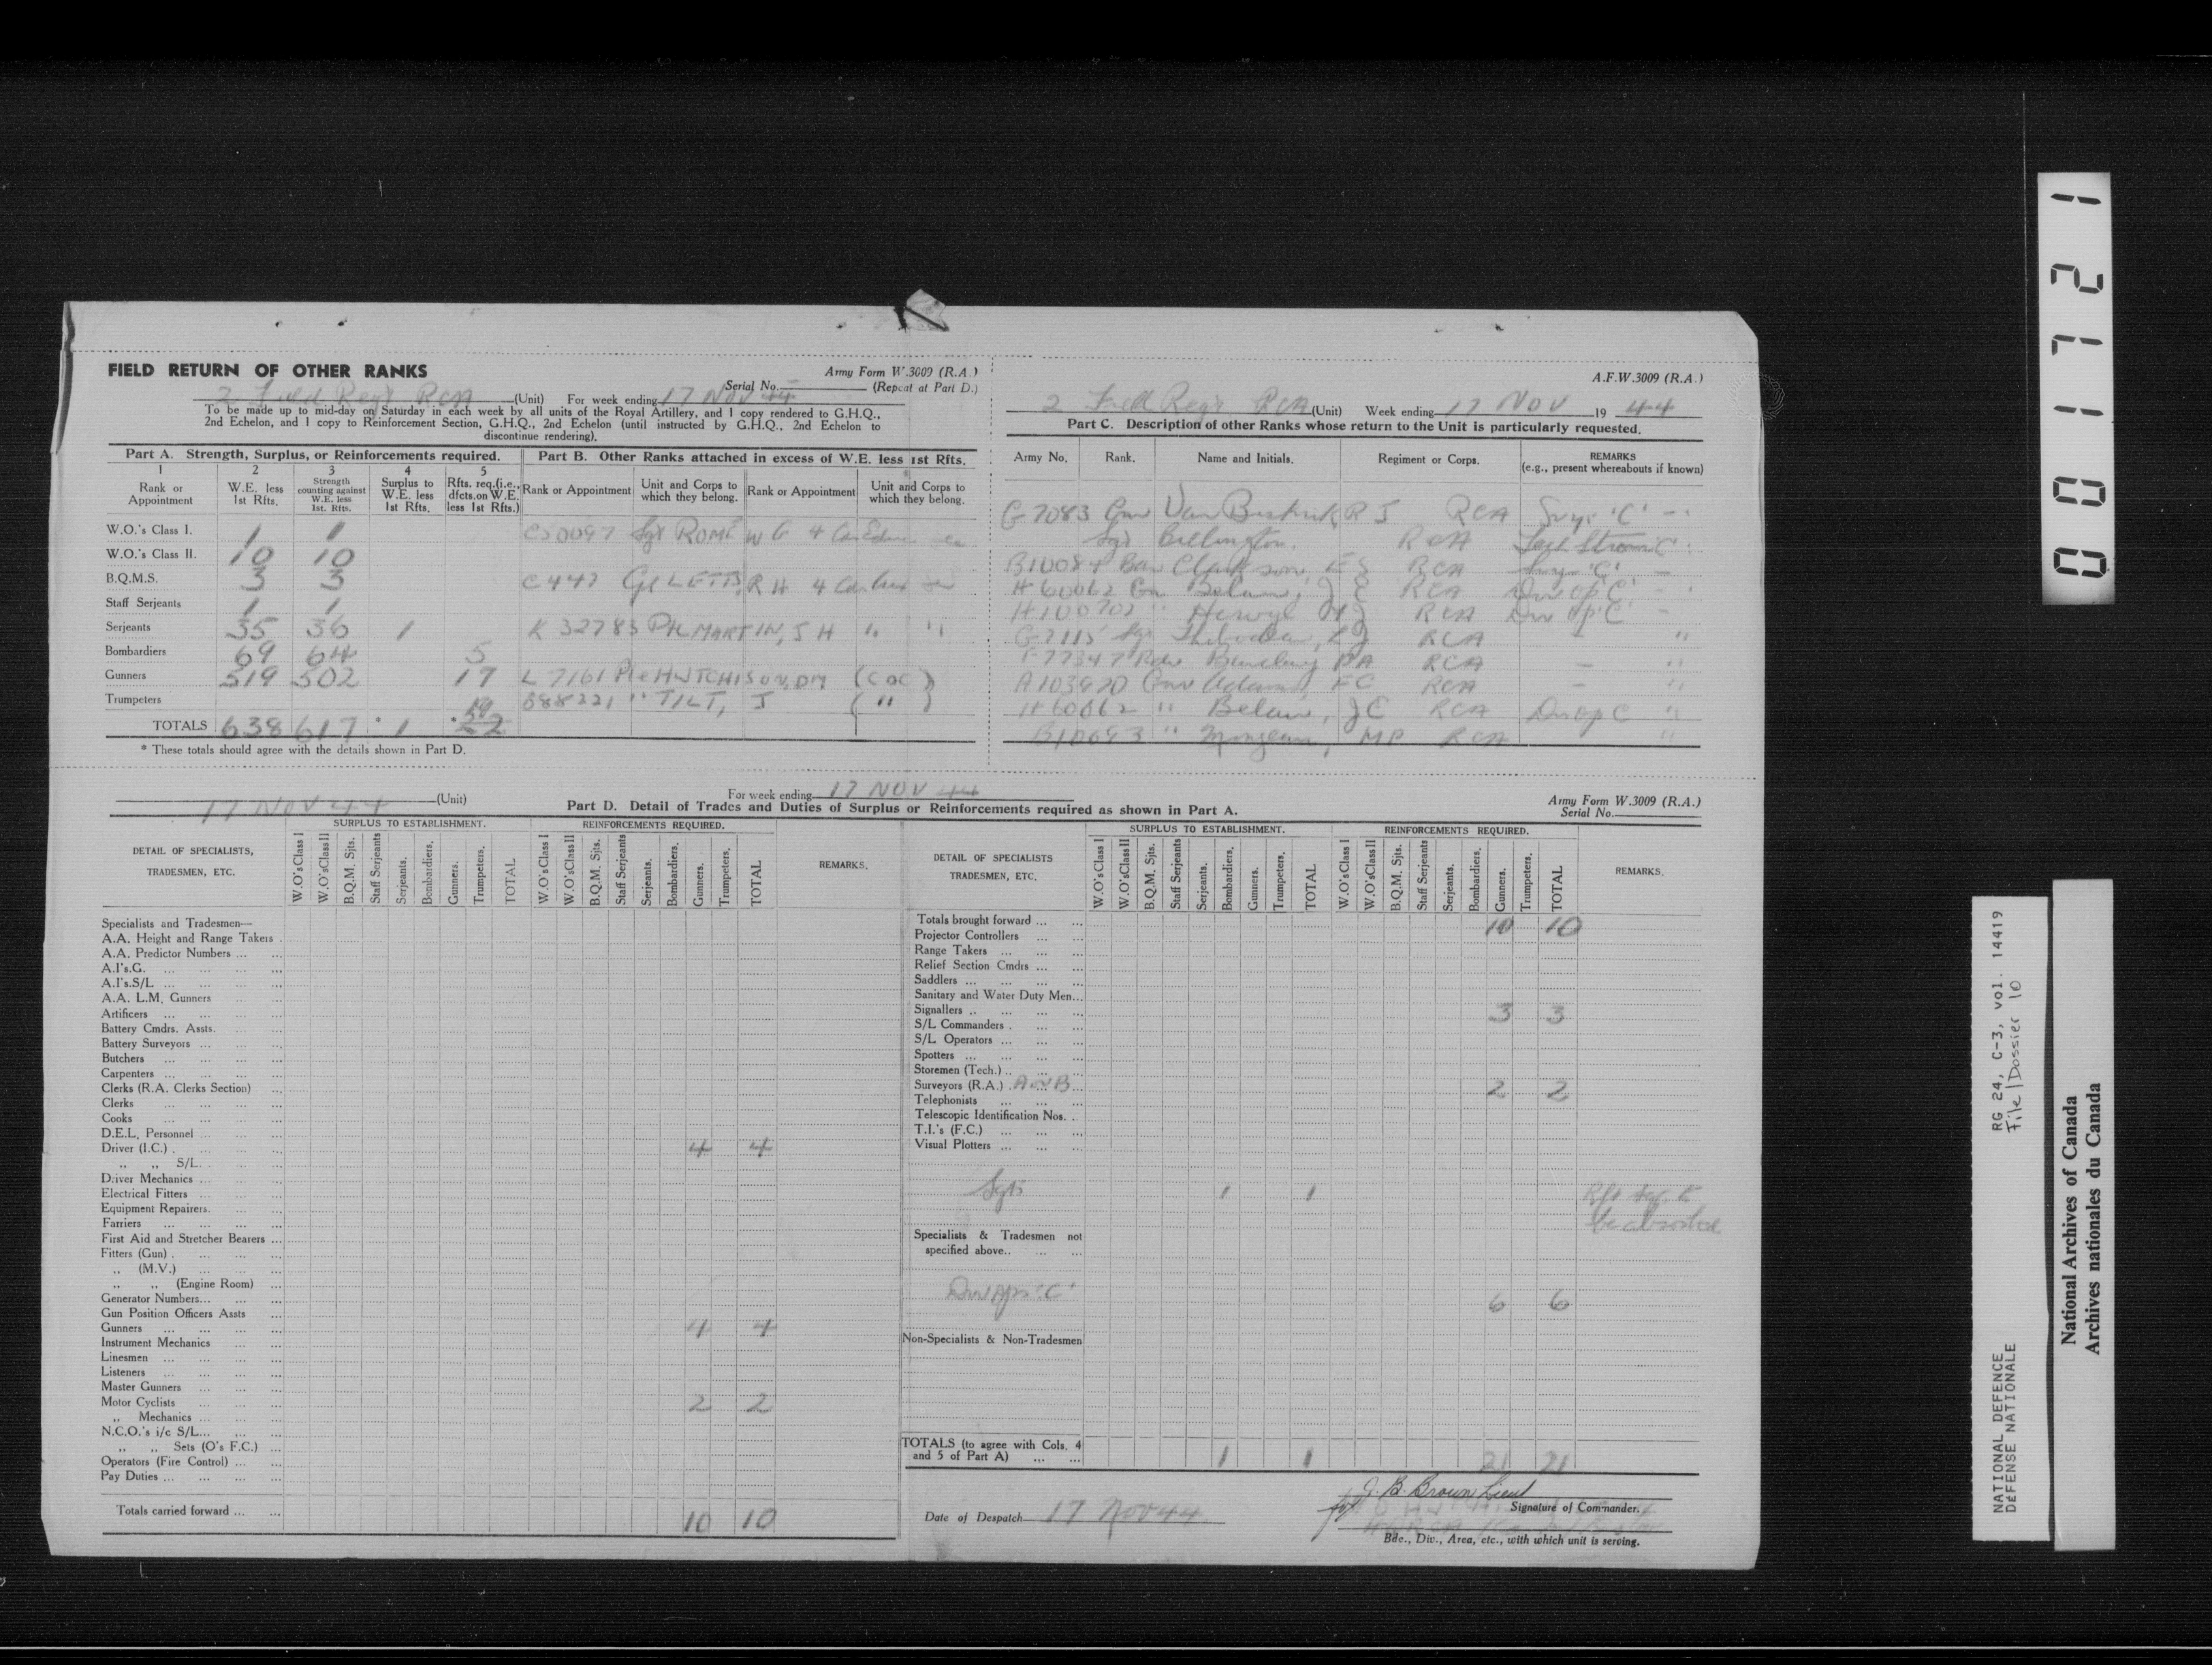 FIELD RETURN OF OTHER RANKS
Army Form W.3009 (R.A.)
Serial No. (Repeat at Part D.)
2 Field Reg't RCA (Unit) For week ending 17 Nov 44
To be made up to mid-day on Saturday in each week by all units of the Royal Artillery, and 1 copy rendered to G.H.Q.,
2nd Echelon, and 1 copy to Reinforcement Section, G.H.Q., 2nd Echelon (until instructed by G.H.Q., 2nd Echelon to
discontinue rendering).
Part A. Strength, Surplus, or Reinforcements required.
1 2 3 4 5
Rank or Appointment
W.E. less 1st Rfts.
Strength counting against W.E. less 1st. Rfts.
Surplus to W.E. less 1st Rfts.
Rfts. req.(i.e., dfcts.on W.E. less 1st Rfts.)
W.O.'s Class I. 1 1
W.O.'s Class II. 10 10
B.Q.M.S. 3 3
Staff Serjeants 1 1
Serjeants 35 36 1
Bombardiers 69 64 5
Gunners 519 502 17
Trumpeters
TOTALS 638 617 * 1 * 22
* These totals should agree with the details shown in Part D.
Part B. Other Ranks attached in excess of W.E. less 1st Rfts.
Rank or Appointment
Unit and Corps to which they belong.
Rank or Appointment
Unit and Corps to which they belong.
Sgt ROME W G 4
C447 R H 4
K 32783 Pte MARTIN, J H " "
L 7161 Pte HUTCHISON, DM (CDC)
B88221 " TILT, J ( " )
A.F.W.3009 (R.A.)
2 Field Reg't RCA (Unit) Week ending 17 Nov 19 44
Part C. Description of other Ranks whose return to the Unit is particularly requested.
Army No. Rank. Name and Initials. Regiment or Corps. REMARKS (e.g., present whereabouts if known)
G 7083 Gnr Van R J RCA 'C'
Sgt Billington. RCA
B10084 Clarkson, RCA 'C'
H 60062 Gnr RCA Dvr Op 'C'
H100702 " RCA Dvr Op 'C'
G 7115 Sgt RCA - "
F77347 RCA - "
A103920 Gnr Adams, FC RCA - "
H60062 " JC RCA Dvr Op C "
B10093 " MP RCA "
17 NOV 44 (Unit) For week ending 17 NOV 44
Part D. Detail of Trades and Duties of Surplus or Reinforcements required as shown in Part A.
Army Form W.3009 (R.A.)
Serial No.
DETAIL OF SPECIALISTS, TRADESMEN, ETC.
SURPLUS TO ESTABLISHMENT.
W.O's Class I W.O's Class II B.Q.M. Sjts. Staff Serjeants Serjeants. Bombardiers. Gunners. Trumpeters. TOTAL
REINFORCEMENTS REQUIRED.
W.O's Class I W.O's Class II B.Q.M. Sjts. Staff Serjeants Serjeants. Bombardiers. Gunners. Trumpeters. TOTAL
REMARKS.
Specialists and Tradesmen—
A.A. Height and Range Takers
A.A. Predictor Numbers
A.I's.G.
A.I's.S/L
A.A. L.M. Gunners
Artificers
Battery Cmdrs. Assts.
Battery Surveyors
Butchers
Carpenters
Clerks (R.A. Clerks Section)
Clerks
Cooks
D.E.L. Personnel
Driver (I.C.) 4 4
„ „ S/L.
Driver Mechanics
Electrical Fitters
Equipment Repairers.
Farriers
First Aid and Stretcher Bearers
Fitters (Gun)
„ (M.V.)
„ „ (Engine Room)
Generator Numbers
Gun Position Officers Assts
Gunners 4 4
Instrument Mechanics
Linesmen
Listeners
Master Gunners
Motor Cyclists 2 2
„ Mechanics
N.C.O.'s i/c S/L
„ „ Sets (O's F.C.)
Operators (Fire Control)
Pay Duties
Totals carried forward 10 10
DETAIL OF SPECIALISTS TRADESMEN, ETC.
SURPLUS TO ESTABLISHMENT.
W.O's Class I W.O's Class II B.Q.M. Sjts. Staff Serjeants Serjeants. Bombardiers. Gunners. Trumpeters. TOTAL
REINFORCEMENTS REQUIRED.
W.O's Class I W.O's Class II B.Q.M. Sjts. Staff Serjeants Serjeants. Bombardiers. Gunners. Trumpeters. TOTAL
REMARKS.
Totals brought forward 10 10
Projector Controllers
Range Takers
Relief Section Cmdrs
Saddlers
Sanitary and Water Duty Men
Signallers 3 3
S/L Commanders
S/L Operators
Spotters
Storemen (Tech.)
Surveyors (R.A.) A or B 2 2
Telephonists
Telescopic Identification Nos.
T.I.'s (F.C.)
Visual Plotters
Sgts 1 1 Rft Sgt to
be absorbed
Specialists & Tradesmen not
specified above
Dvr Ops 'C' 6 6
Non-Specialists & Non-Tradesmen
TOTALS (to agree with Cols. 4
and 5 of Part A) 1 1 21 21
Date of Despatch 17 Nov 44
J. B. Brown Lieut
for Signature of Commander.
Bde., Div., Area, etc., with which unit is serving.
001721
RG 24, C-3, vol. 14419
File/Dossier 10
NATIONAL DEFENCE
DÉFENSE NATIONALE
National Archives of Canada
Archives nationales du Canada